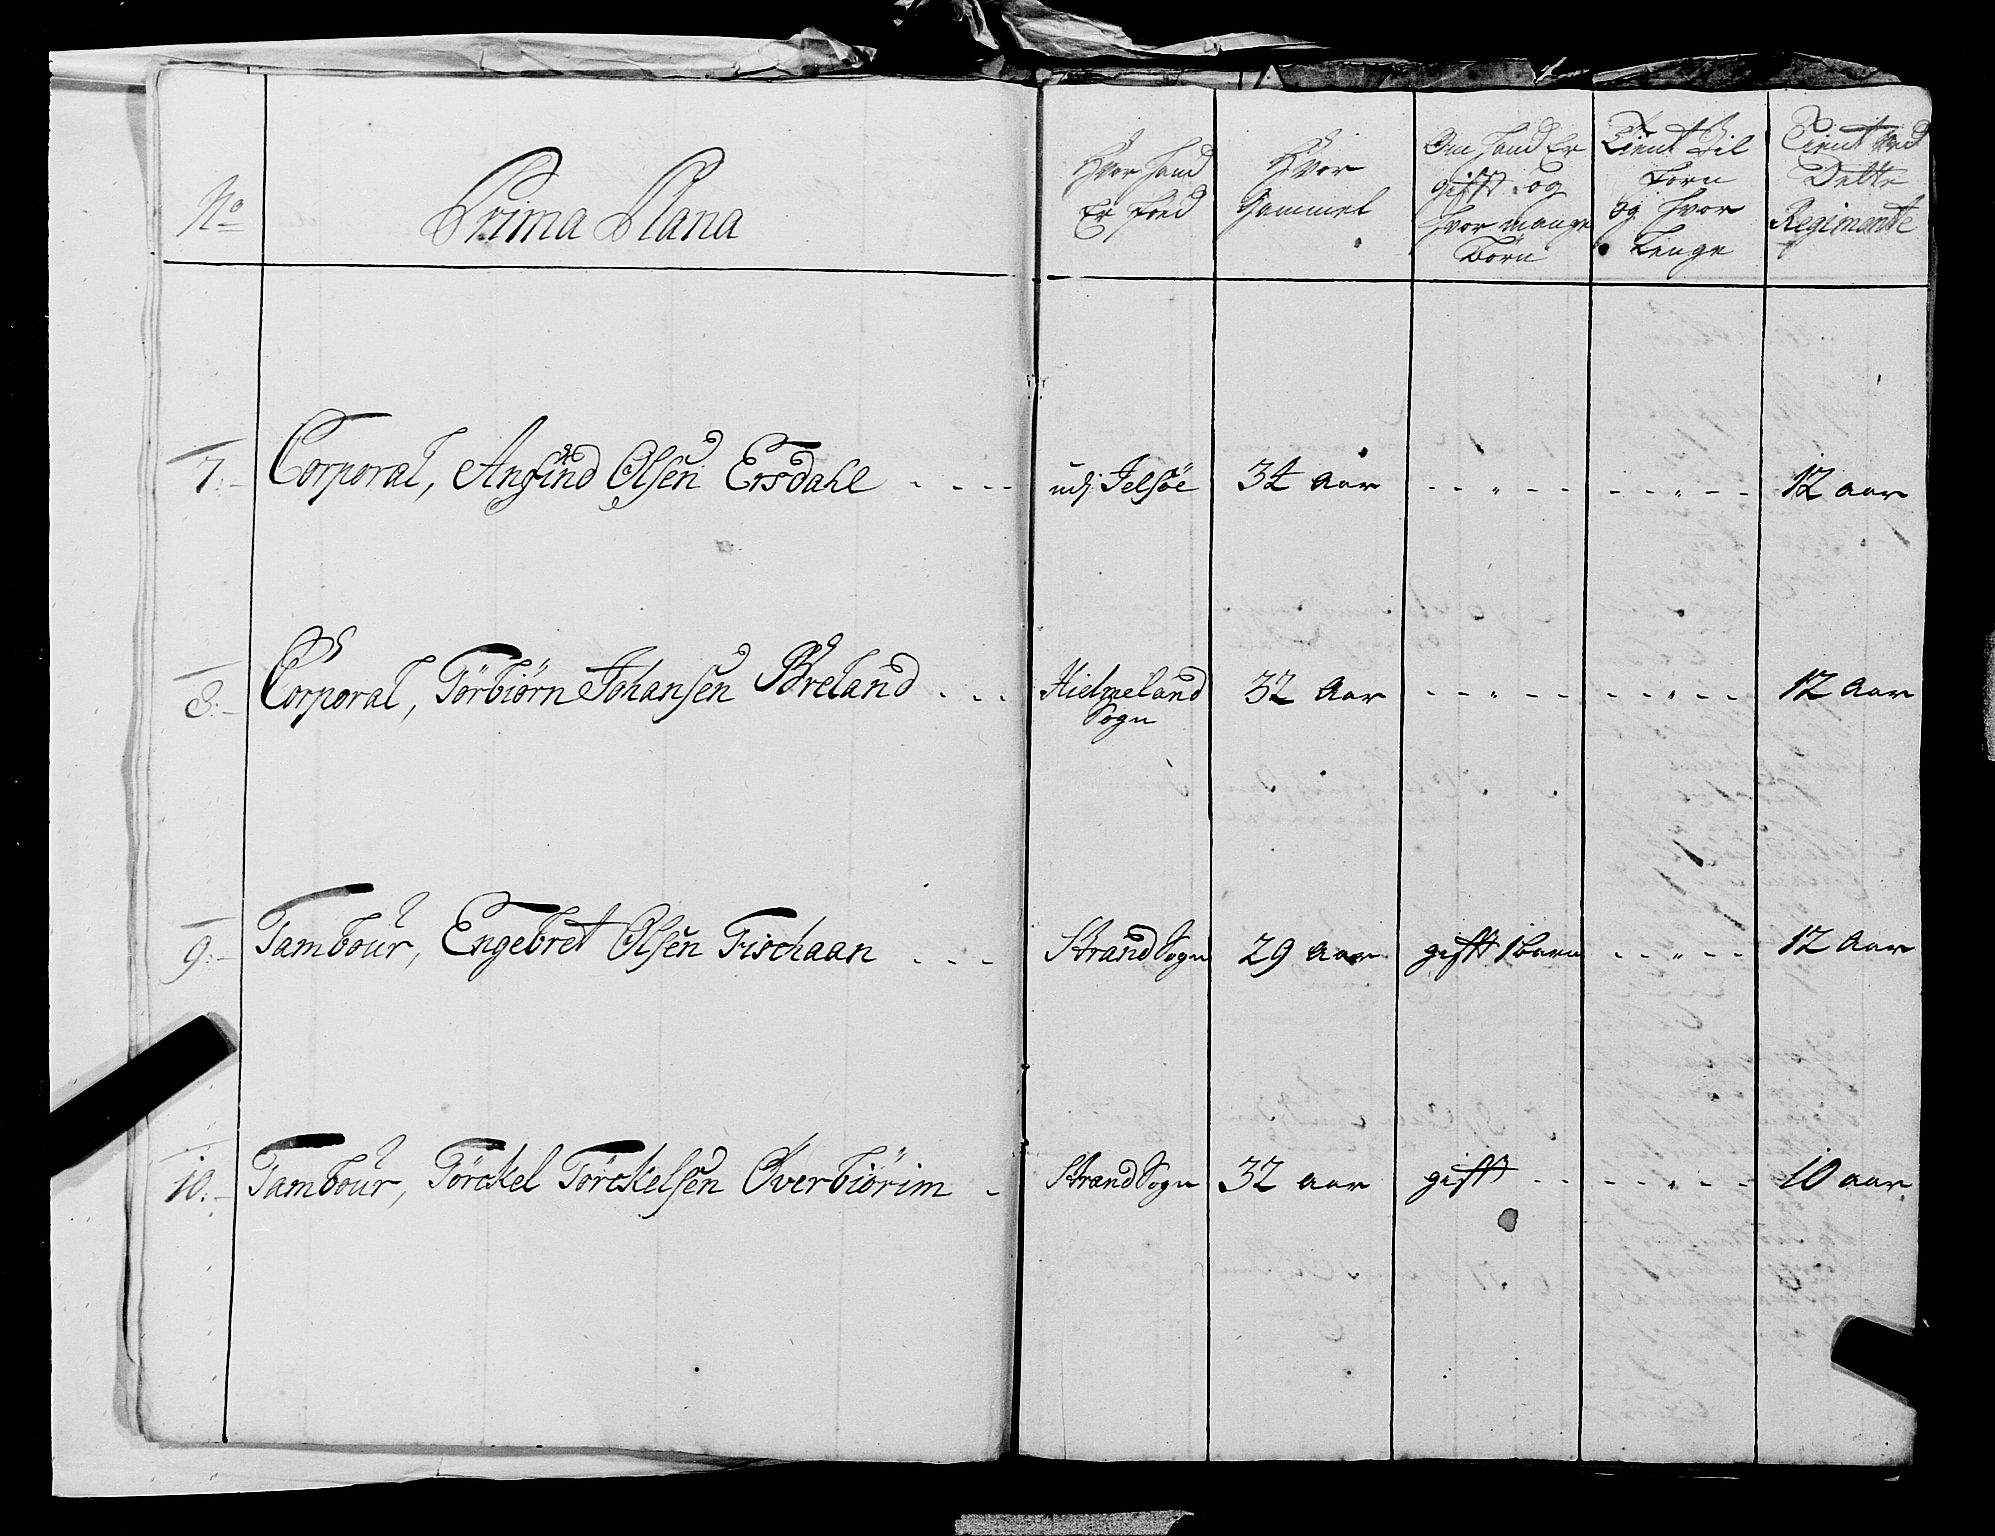 No
Prima Plana
Hvor hand
Er fød
Hvor
Gammel
Om hand Er
gifft og
hvor mange
Börn
Tient Til
forn
og hvor
Lenge
Tient ved
Dette
Regimente
7:- Corporal, Anfind Olsen Ersdahl - - - - udj Jelsöe 34 aar - - " - - - - " - - 12 aar
8:- Corporal, Törbiörn Johansen Breland - - - Hielmeland 32 Aar - - " - - - - " - - 12 Aar
Sogn
9:- Tambour, Engebret Olsen Fischaan - - - Strand Sogn 29 Aar gifft 1 barn - - " - - 12 Aar
10:- Tambour, Törckel Törckelsen Overbiörim - Strand Sogn 32 aar gifft - - - - " - - 10 aar